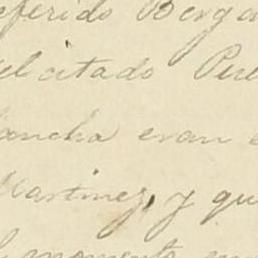 referido Berga
el citado Pue
lancha eran e
Martinez, y qu
momento